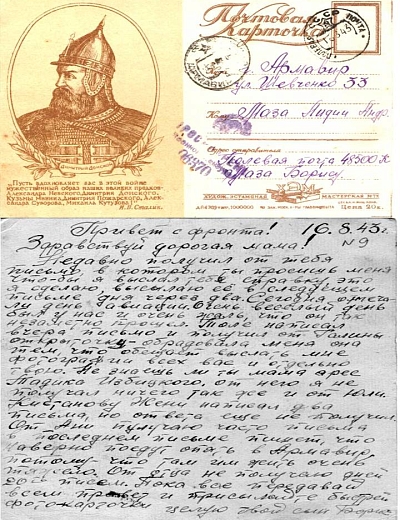 Почтовая
Карточка
Куда г. Армавир
ул. Шевченко 33
Кому Маза Лидии Андр.
Адрес отправителя
Полевая почта 48500 К
Маза Борис.
ДИМИТРИЙ ДОНСКОЙ
„Пусть вдохновляет вас в этой войне
мужественный образ наших великих предков—
Александра Невского, Димитрия Донского,
Кузьмы Минина, Димитрия Пожарского, Алек-
сандра Суворова, Михаила Кутузова!"
И. В. Сталин.
ХУДОЖ. ЭСТАМПНАЯ МАСТЕРСКАЯ
Цена 20 к.
Привет с фронта! 16.8.43г.
Здравствуй дорогая мама! №9
Недавно получил от тебя
письмо в котором ты просишь меня
что-бы я выслал тебе справку это
я сделаю вышлю её в следующем
письме дня через два. Сегодня отмеча-
ли день авиации. Очень весёлый день
был у нас и очень жаль, что он так
незаметно прошёл. Тоже написал
вчера письмо и получил от Галины
открыточку – обрадовала меня она
тем, что обещает выслать мне
фотографии всех вас и отдельно
твою. Не знаешь ли ты мама адрес
Мадика Избицкого, от него я не
получаю ничего так же и от Юли.
Кистанову Жене написал два
письма, но ответа ещё не получил.
От Ани получаю часто письма
в последнем письме пишет, что
наверно поедут опять в Армавир,
потому что там им жить очень
тяжело. От отца не получаю дней
20ть писем. Пока всё передавай
всем привет и присылайте быстрей
фотокарточки целую твой сын Борис